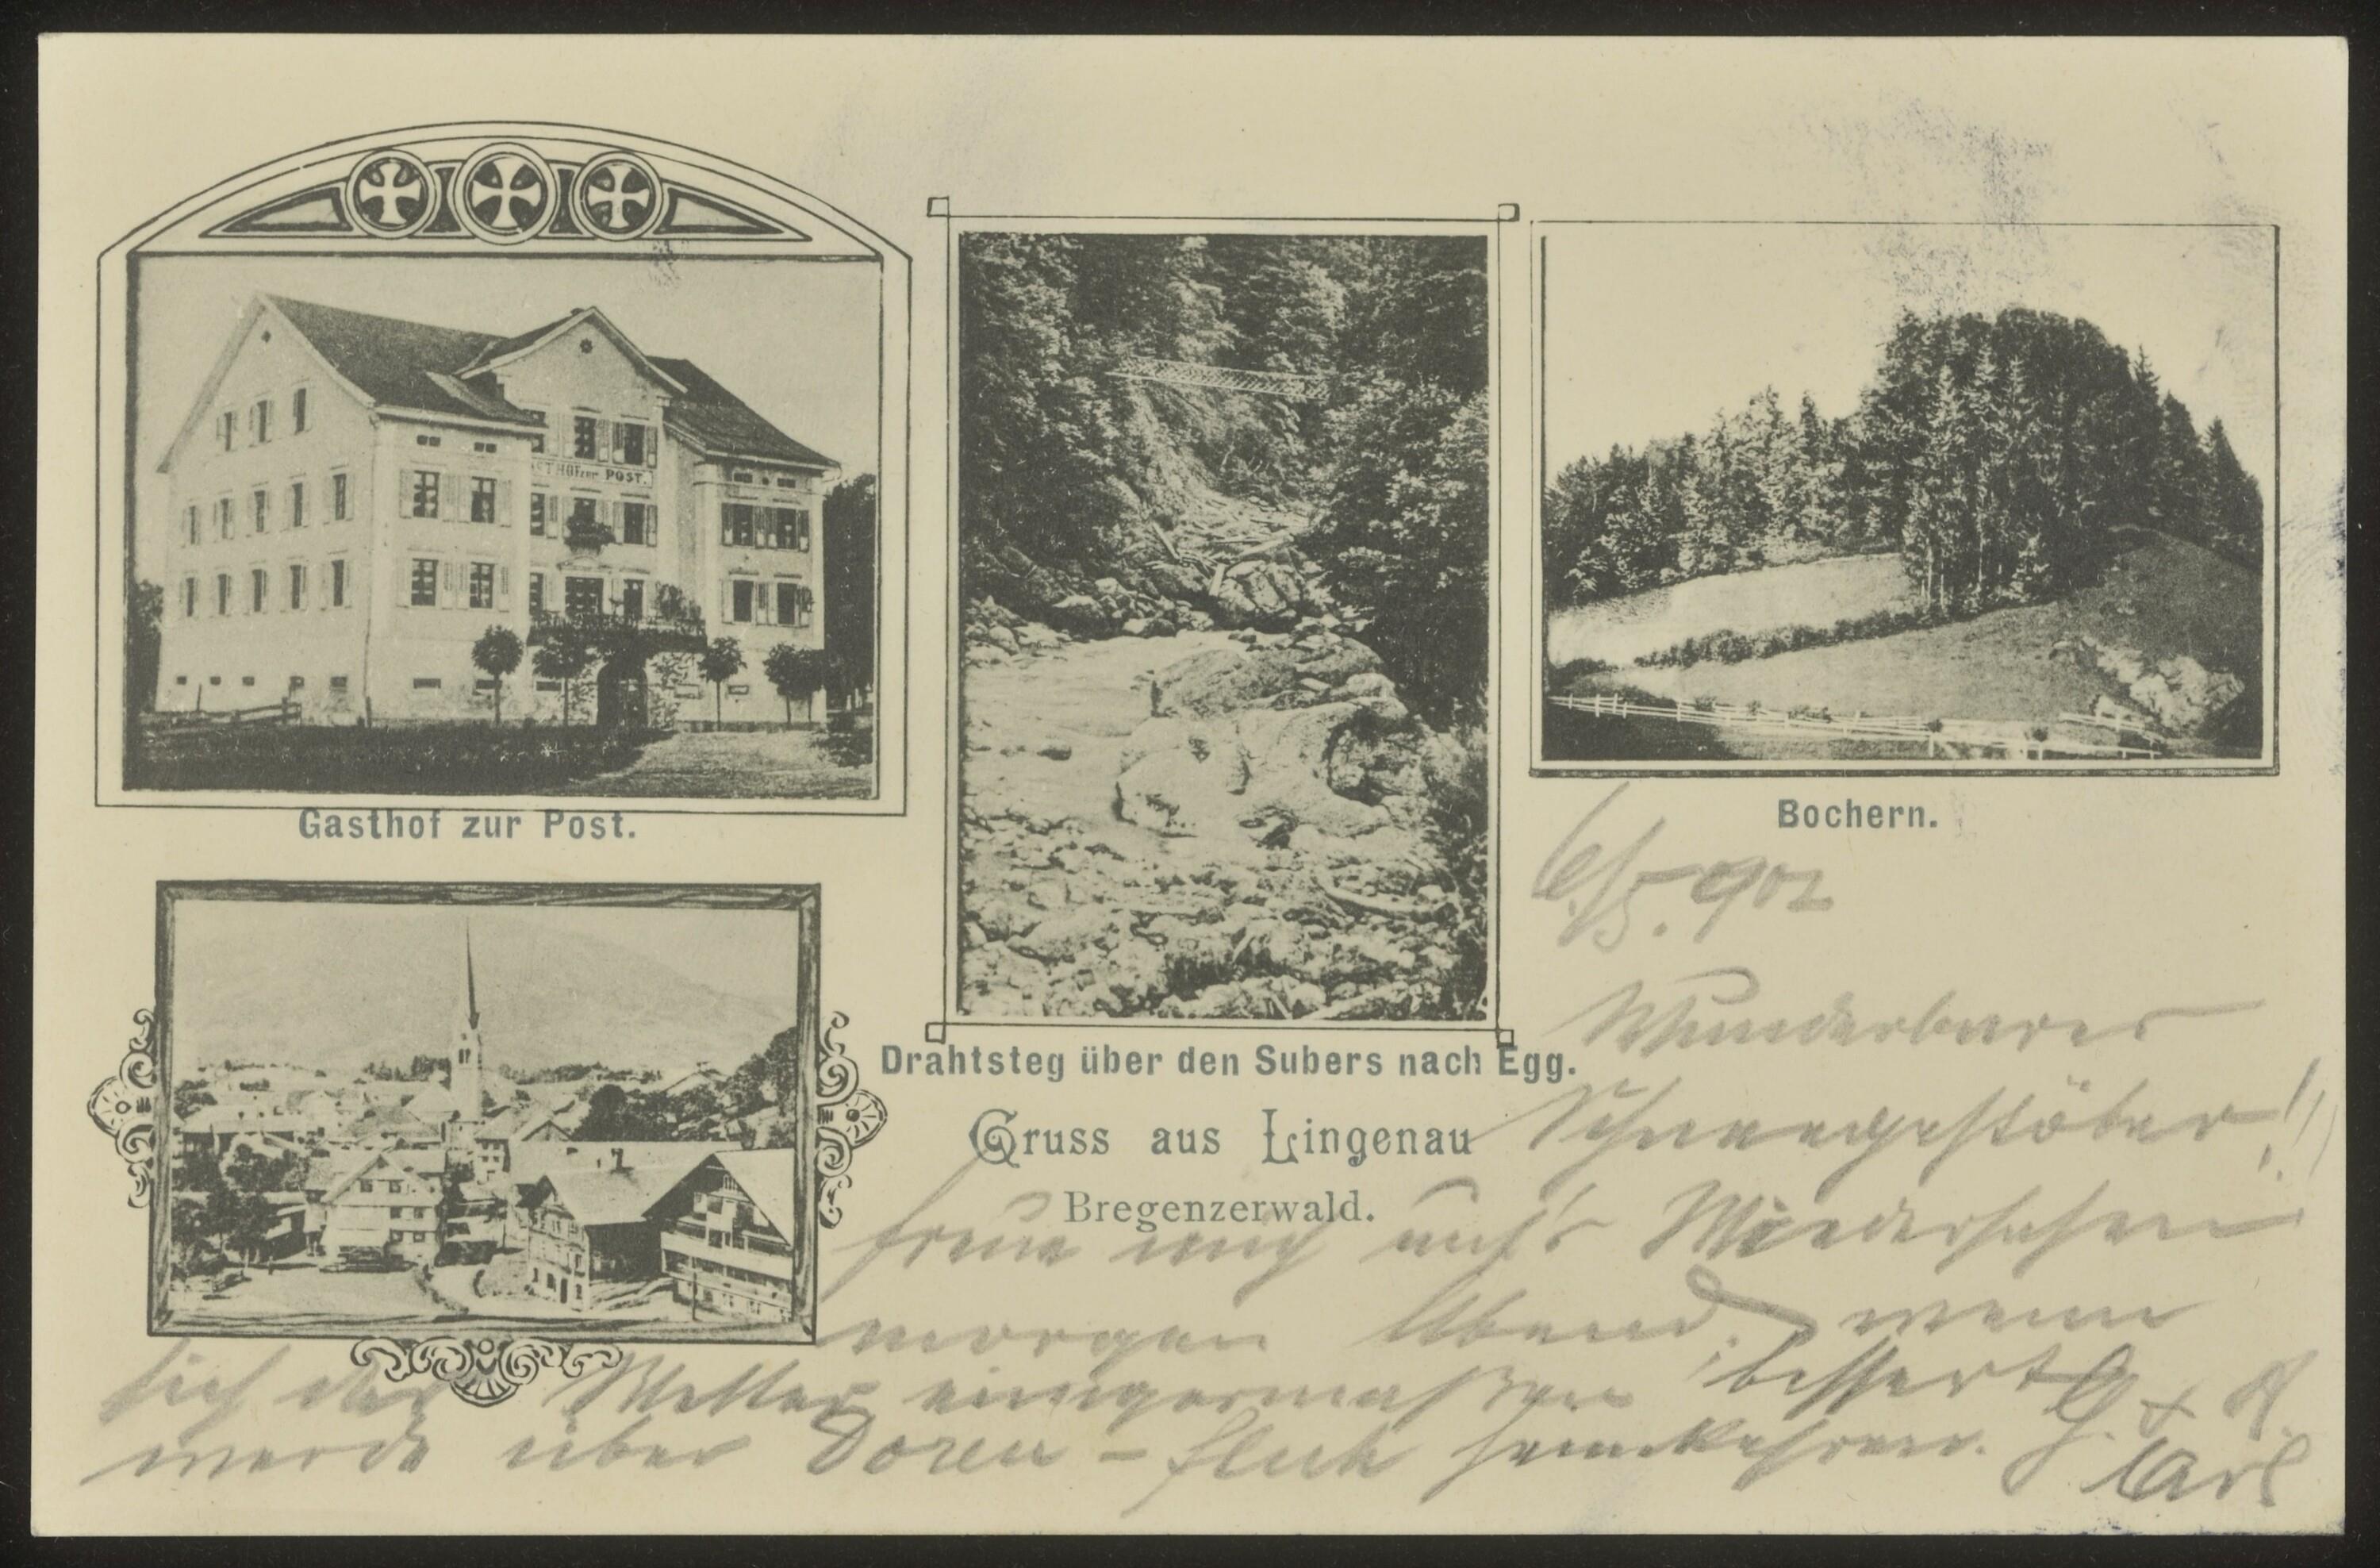 GASTHOF zur POST.
Gasthof zur Post.
Bochern.
Drahtsteg über den Subers nach Egg.
Gruss aus Lingenau
Bregenzerwald.
6/5. 902
Wunderbares
Schneegestöber!!
freue mich auf's Wiedersehen
morgen Abend, wenn
sich das Wetter einigermaßen bessert
werde über Doren - Fluh heimkehren. G. + K.
Carl